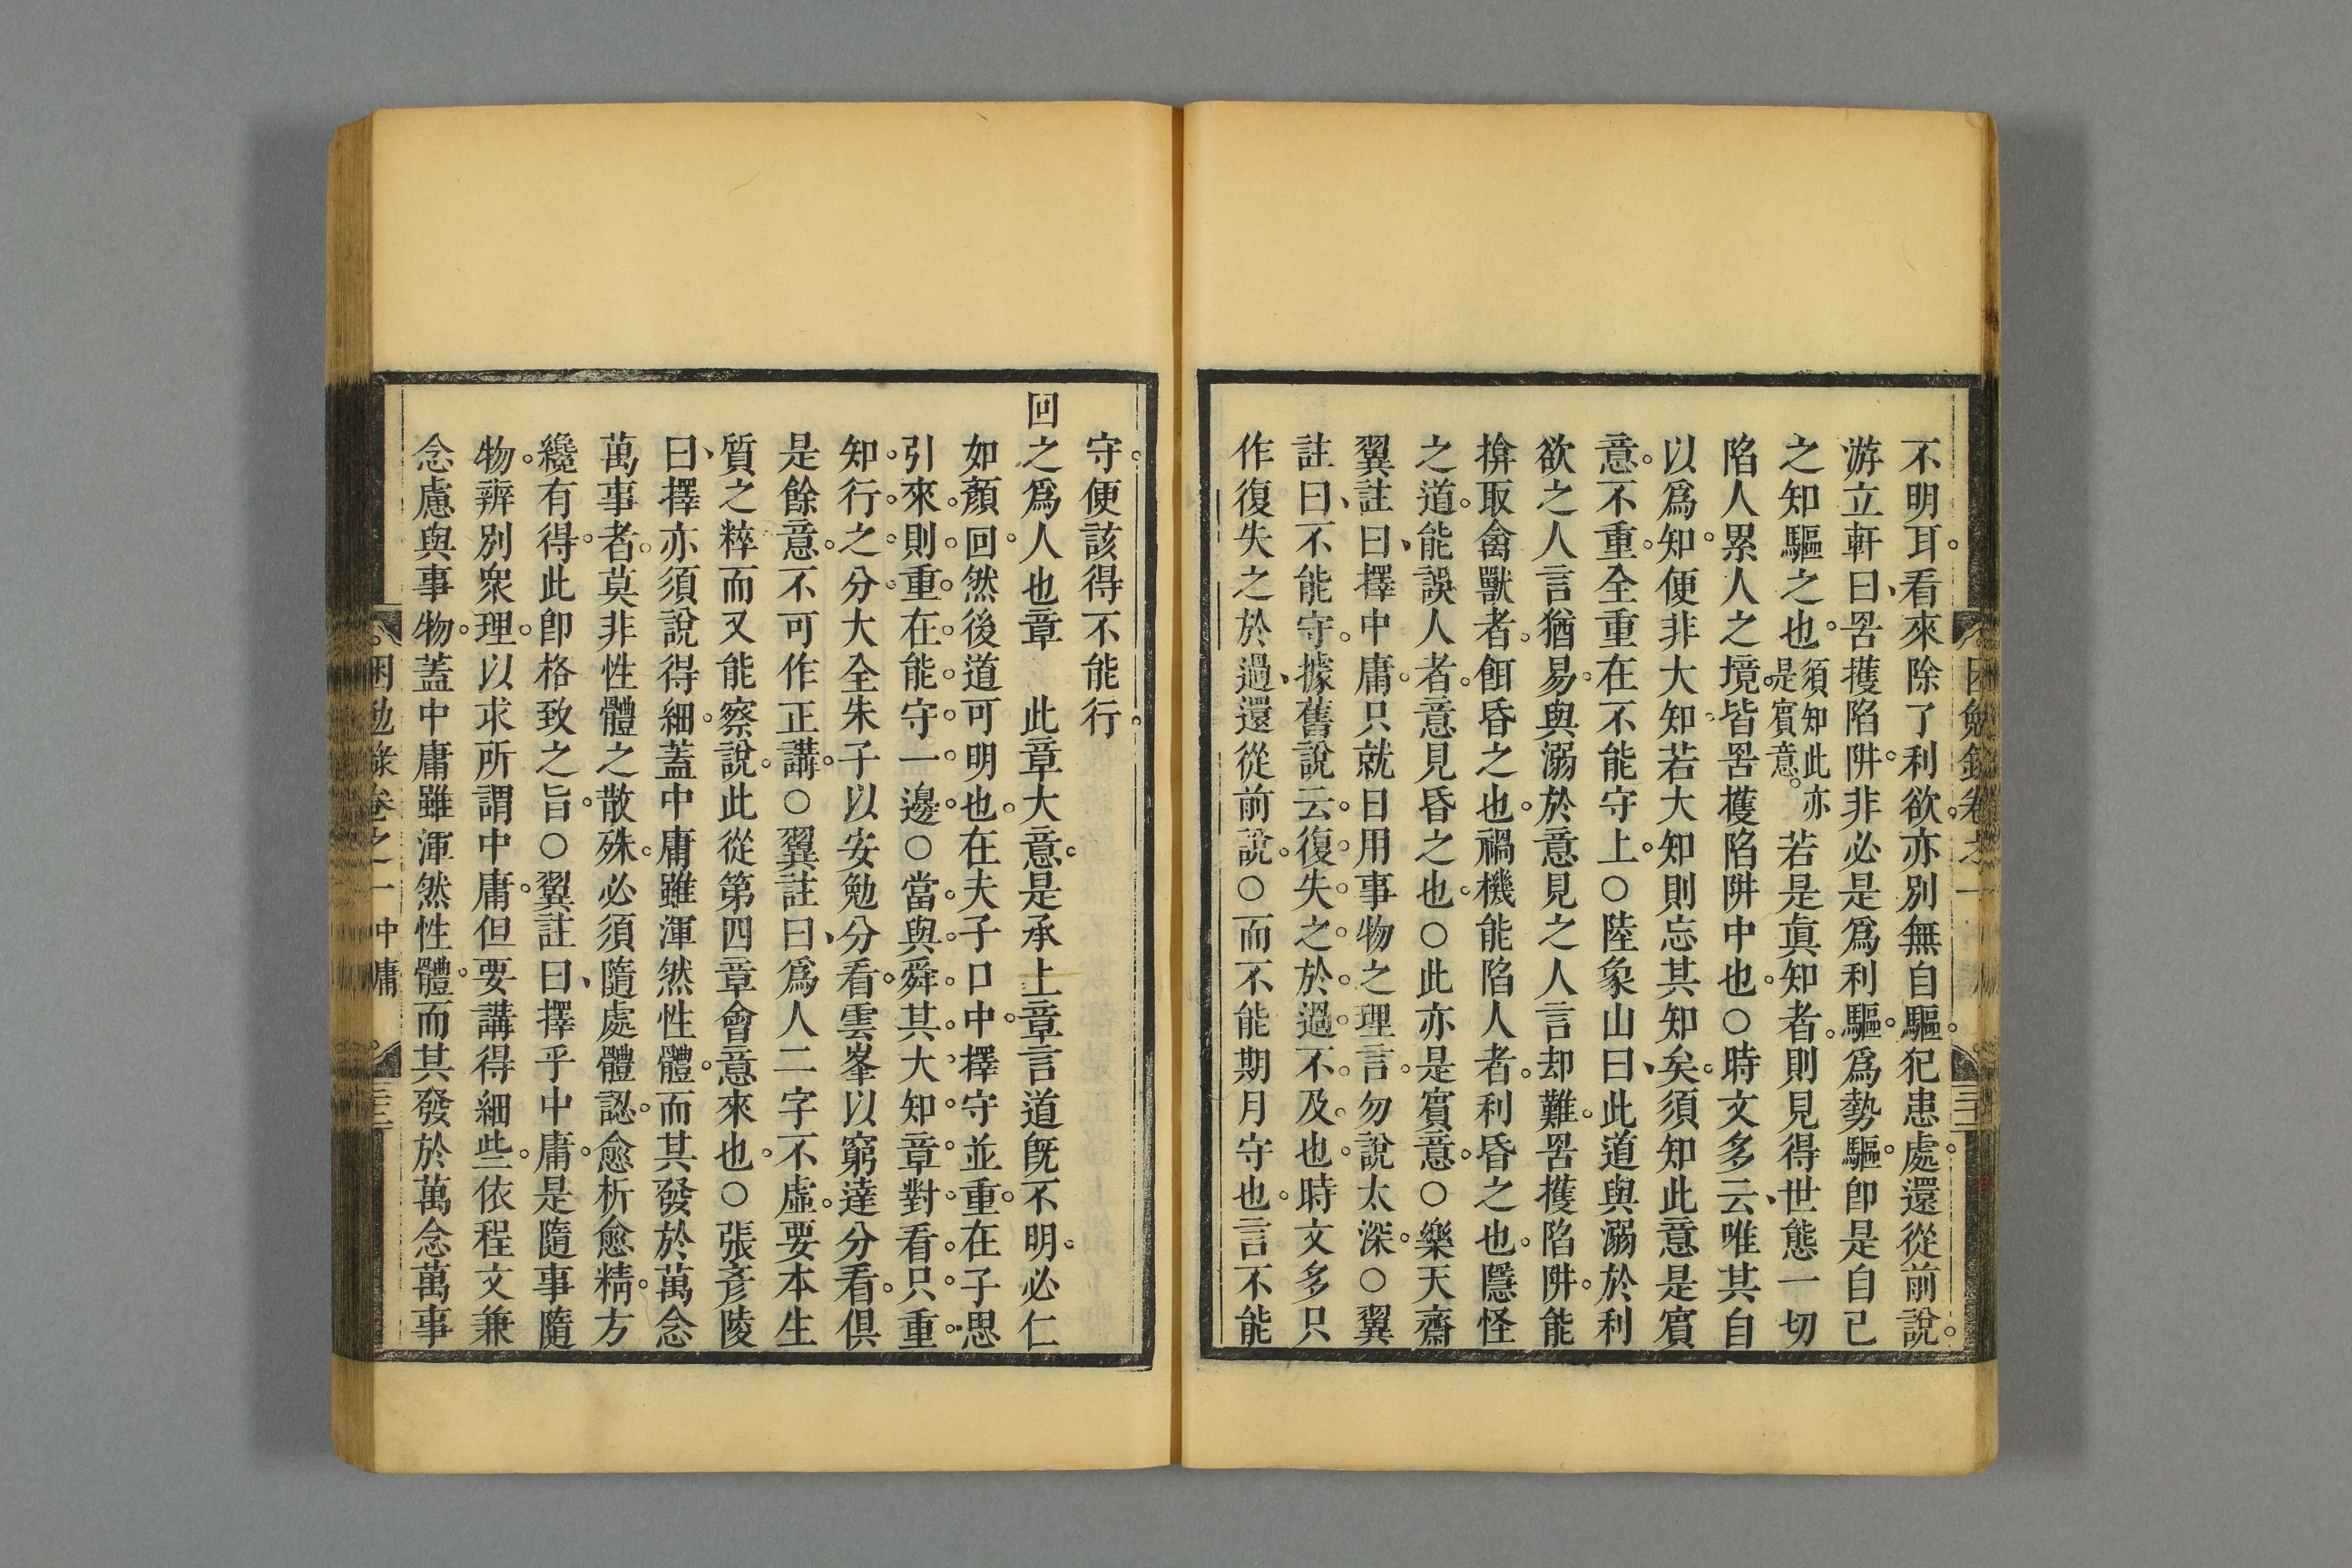 不明耳。看來除了利欲。亦別無自驅。犯患處。還從前說。
游立軒曰、罟擭陷阱。非必是爲利驅。爲勢驅。卽是自己
之知驅之也。須知此亦是賓意。若是眞知者。則見得世態一切
陷人累人之境。皆罟擭陷阱中也。○時文多云、唯其自
以爲知。便非大知。若大知則忘其知矣。須知此意是賓
意。不重。全重在不能守上。○陸象山曰、此道與溺於利
欲之人言猶易。與溺於意見之人言却難。罟擭陷阱。能
揜取禽獸者。餌昏之也。禍機能陷人者。利昏之也。隱怪
之道。能誤人者。意見昏之也。○此亦是賓意。○樂天齋
翼註曰、擇中庸。只就日用事物之理言。勿說太深。○翼
註曰、不能守。據舊說云。復失之於過。不及也。時文多只
作復失之於過、還從前說。○而不能期月守也。言不能
守。便該得不能行。
回之爲人也章　此章大意。是承上章言道旣不明。必仁
如顏回。然後道可明也。在夫子口中。擇守並重。在子思
引來。則重在能守一邊。○當與舜其大知章對看。只重
知行之分。大全朱子以安勉分看。雲峯以窮達分看。俱
是餘意。不可作正講。○翼註曰、爲人二字不虛。要本生
質之粹而又能察說。此從第四章會意來也。○張彥陵
曰、擇亦須說得細。蓋中庸雖渾然性體。而其發於萬念
萬事者。莫非性體之散殊。必須隨處體認。愈析愈精。方
纔有得。此卽格致之旨。○翼註曰、擇乎中庸。是隨事隨
物。辨別衆理。以求所謂中庸。但要講得細些。依程文兼
念慮與事物。蓋中庸雖渾然性體。而其發於萬念萬事
困勉錄卷之一 中庸